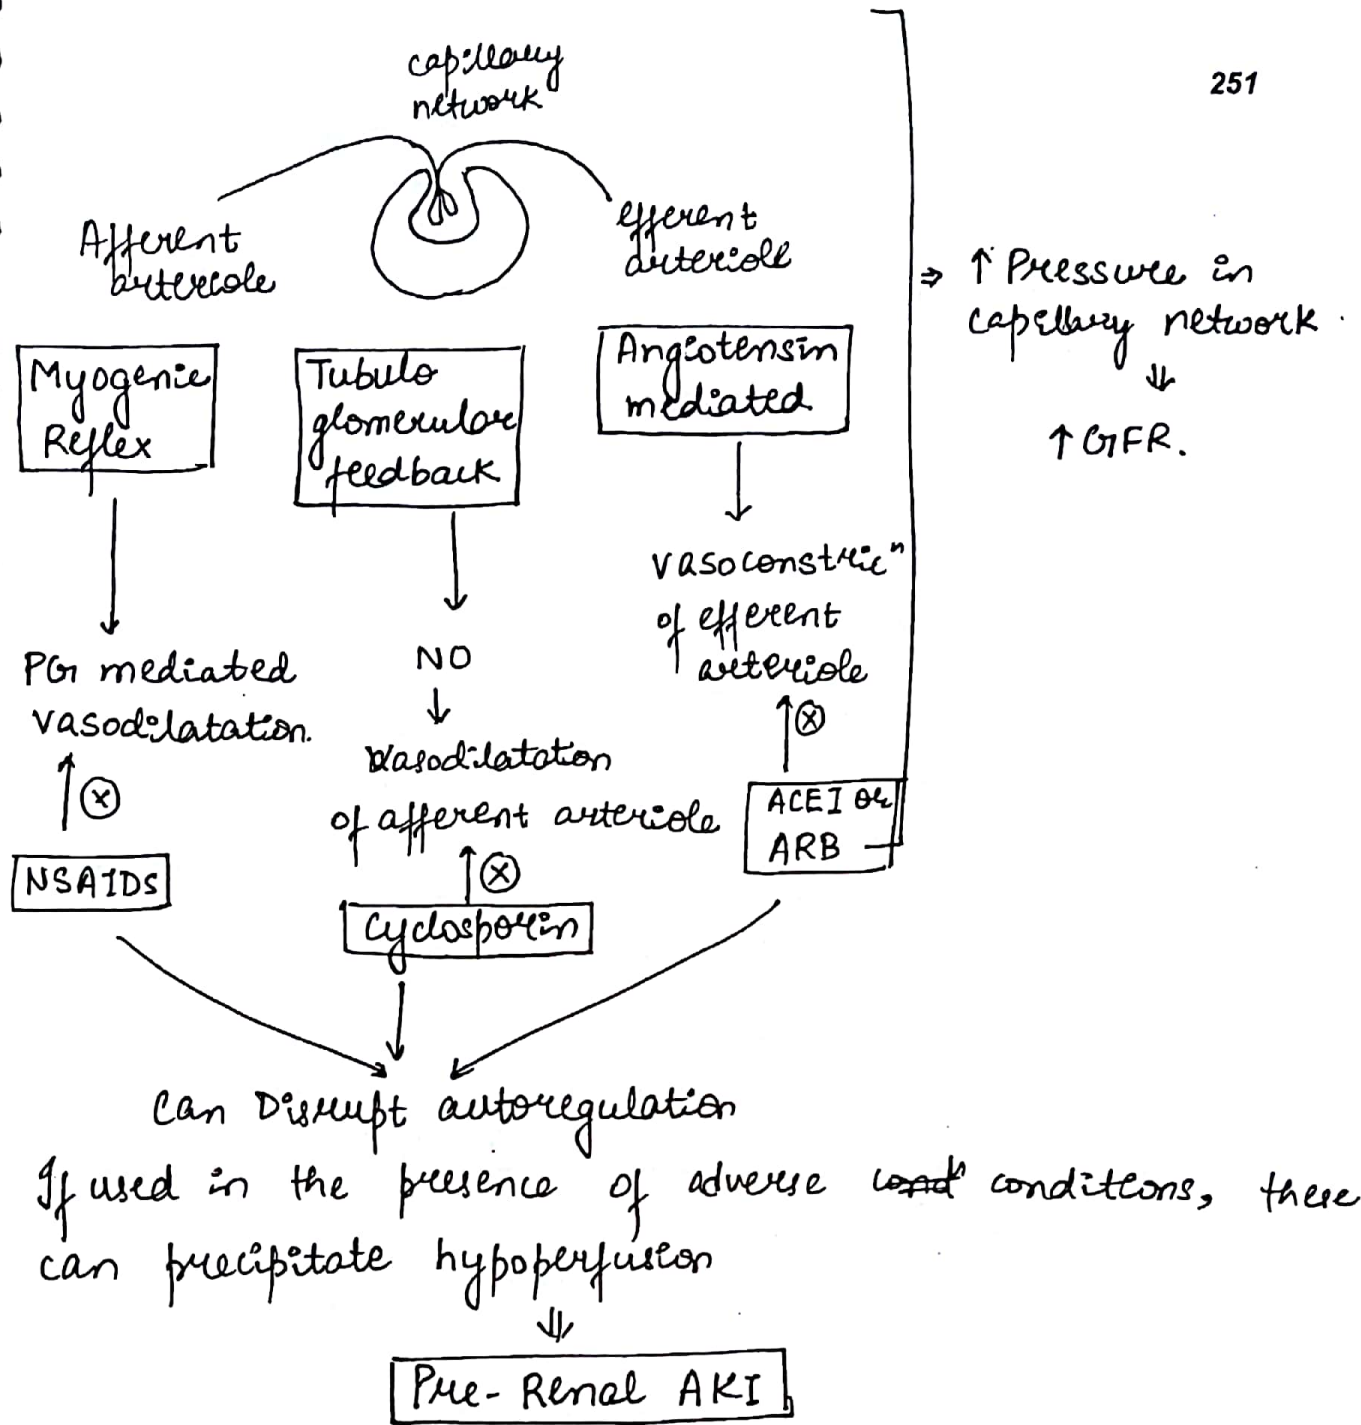 251
capillary
network
Afferent
arteriole
efferent
arteriole
⇒ ↑ Pressure in
capillary network.
⇓
↑ GFR.
Myogenic
Reflex
Tubulo
glomerular
feedback
Angiotensin
mediated
PG mediated
vasodilatation.
↑ ⓧ
NSAIDs
NO
↓
vasodilatation
of afferent arteriole
↑ ⓧ
Cyclosporin
vasoconstricⁿ
of efferent
arteriole
↑ ⓧ
ACEI or
ARB
Can Disrupt autoregulation
If used in the presence of adverse conditions, these
can precipitate hypoperfusion
⇓
Pre-Renal AKI